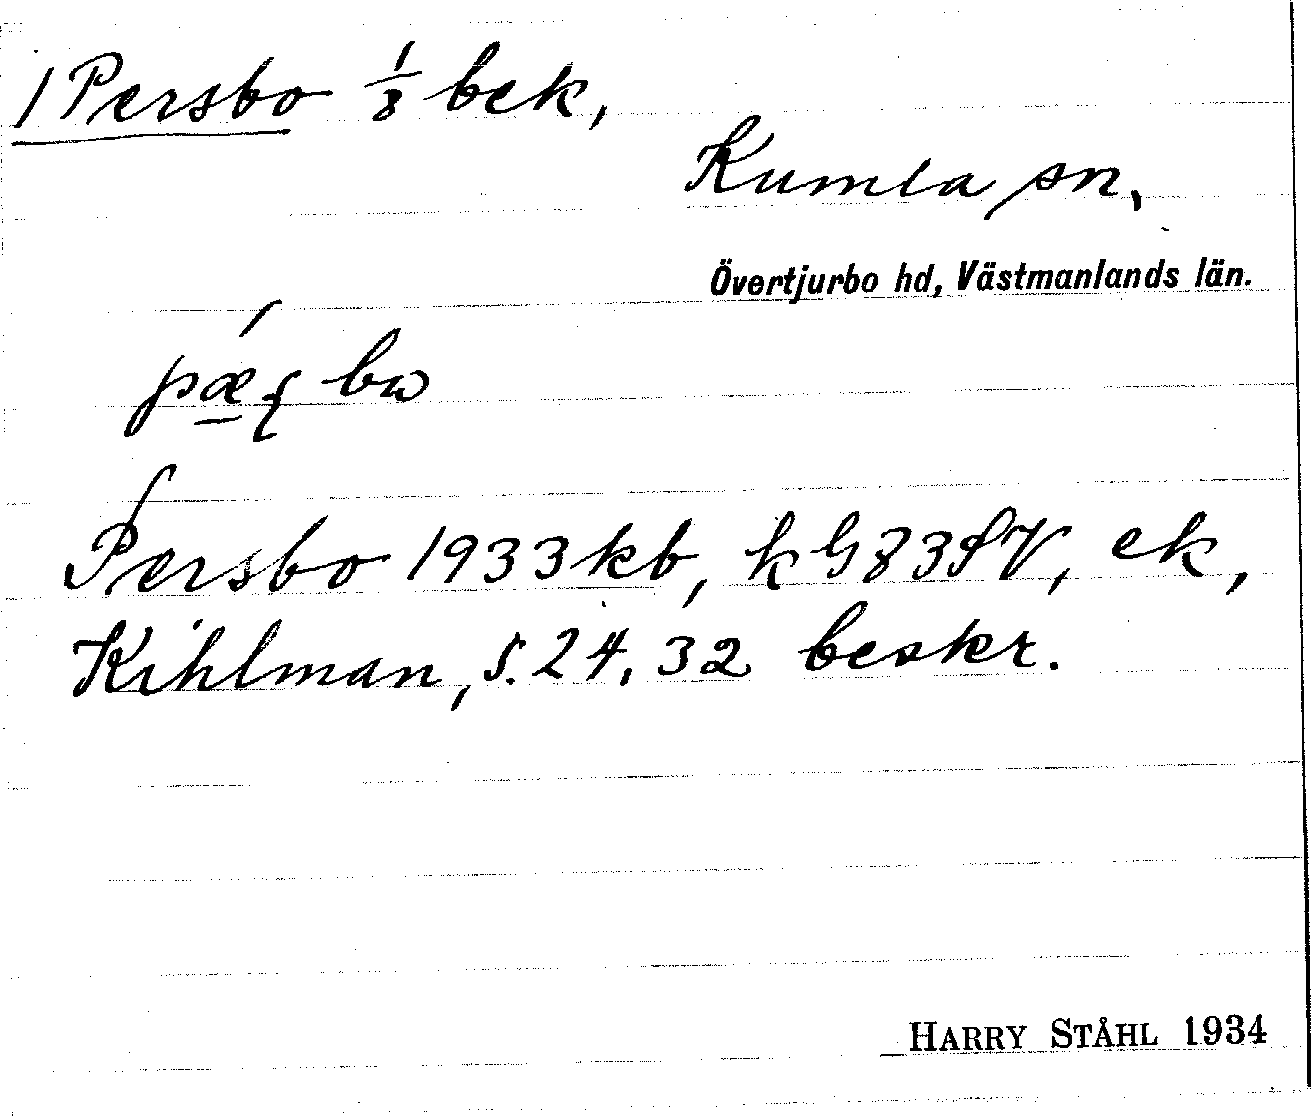 1 Persbo 1/8 bek,
Kumla sn,
Övertjurbo hd, Västmanlands län.
Persbo 1933 kb, k G 83 SV, ek,
Kihlman, s. 24, 32 beskr.
HARRY STÅHL 1934